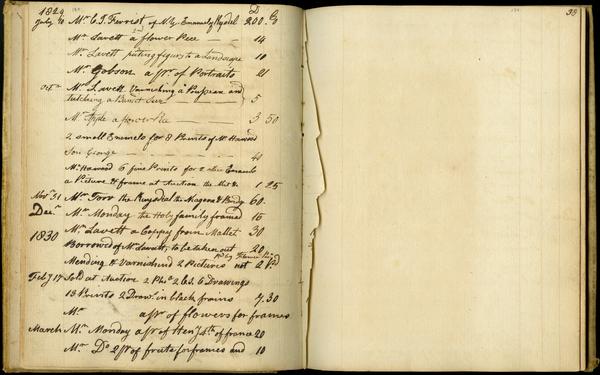 1829 D C
July 10 Mr. C. T. Forrest of N.Y. Emanuely Rysdal 200.
Mr. Lavett a flower Piece 14
Mr. Lavett puting figurs to a Landscape 10
Mr. Gobson a pr. of Portraits 21
Octr. Mr. Lavett Varnishing a Poussean and
tutching a Sunset 5
Mr. Hyde a flower Pce 3 50
2 small Enamels for 8 Prints of Mr. Harwood
Son George 40
Mr. Harwood 6 fine Prints for 2 olive Enamels
a Picture & frame at Auction 1.25
Novr. 31 Mr. Torr the Ruysdial the Niagara & Bridg 60.
Decr. Mr. Monday the Holy family framed 15
1830 Mr. Lavett a Coppey from Mallet 30
Borrowed of Mr. Lavett, to be taken out 20
Mending & Varnishind 2 Pictures not 2 Pd
Feby 17 Sold at Auction 2 6 Drawings
13 Prints 2 Draws. in black frams 7.30
Mr. a pr. of flowers for frames
March Mr. Monday a pr. of Hen 4th of france 20
Mr. Do 2 pr. of fruits for frames and 10
39